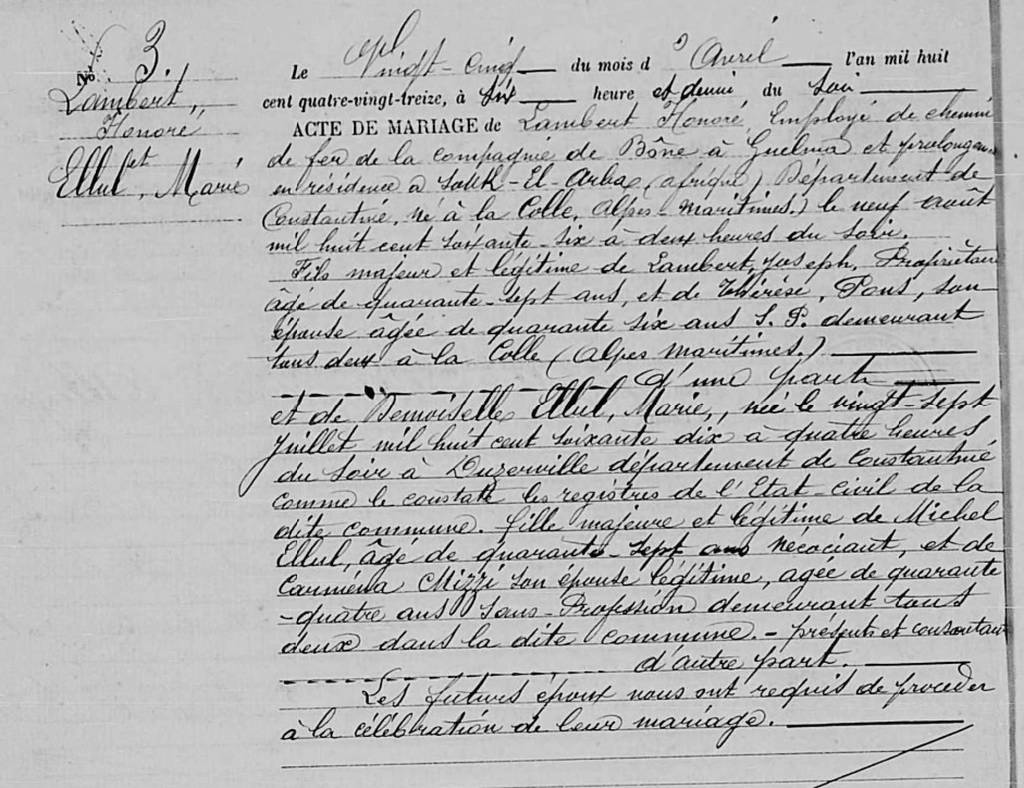 N° 3.
Lambert,
Honoré
et
Ellul, Marie
Le Vingt-cinq du mois d'Avril l'an mil huit
cent quatre-vingt-treize, à six heure et demie du soir
ACTE DE MARIAGE de Lambert Honoré, Employé de chemin
de fer de la compagnie de Bône à Guelma et prolongan
en résidence à Soukh-El-Arba, (afrique) Département de
Constantine, né à la Colle, Alpes-Maritimes.) le neuf août
mil huit cent soixante-six à deux heures du soir.
Fils majeur et légitime de Lambert, Joseph, Propriétaire
âgé de quarante-sept ans, et de Thérèse, Pons, son
épouse âgée de quarante six ans S. P. demeurant
tous deux à la Colle (Alpes maritimes.)
d'une part
et de Demoiselle Ellul, Marie, née le vingt-sept
Juillet mil huit cent soixante dix à quatre heures
du soir à Duzerville département de Constantine
comme le constate les registres de l'Etat-civil de la
dite commune. fille majeure et légitime de Michel
Ellul, âgé de quarante-sept ans Négociant, et de
Carména Mizzi son épouse légitime, agée de quarante
-quatre ans Sans-Profession demeurant tous
deux dans la dite commune. - présents et consentan
d'autre part.
Les futurs époux nous ont requis de procéder
à la célébration de leur mariage.